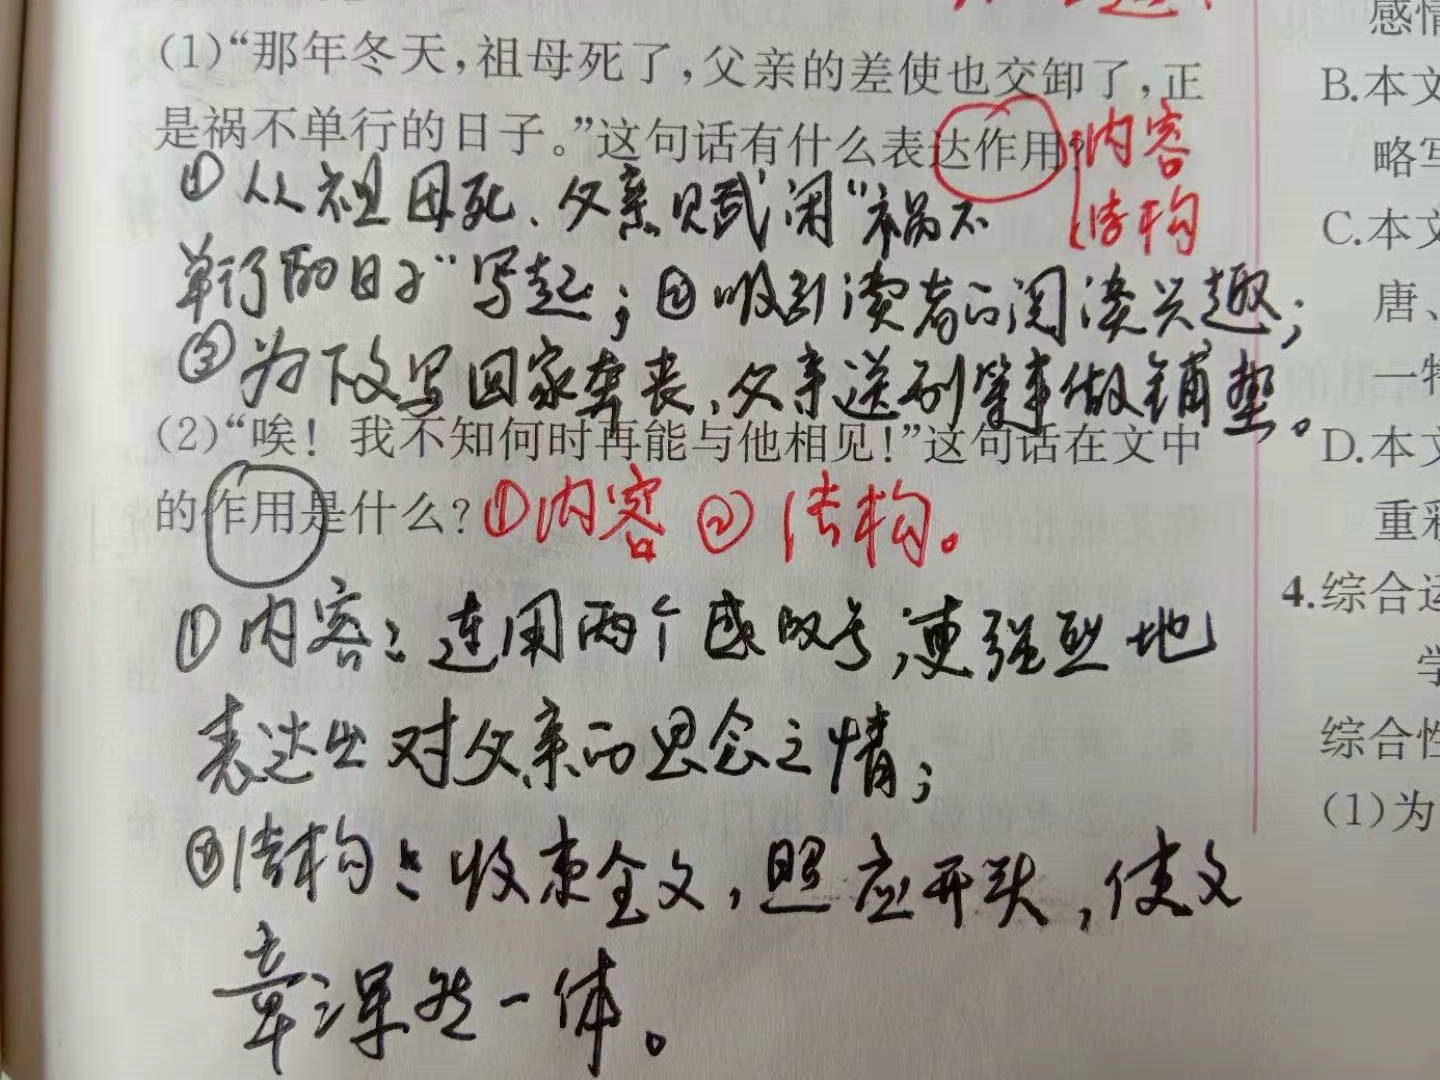 (1)“那年冬天，祖母死了，父亲的差使也交卸了，正
是祸不单行的日子。”这句话有什么表达作用？
内容
结构
①从祖母死、父亲赋闲“祸不
单行的日子”写起；②吸引读者的阅读兴趣；
③为下文写回家奔丧、父亲送别等事做铺垫。
(2)“唉！我不知何时再能与他相见！”这句话在文中
的作用是什么？①内容 ②结构。
①内容：连用两个感叹号，更强烈地
表达出对父亲的思念之情；
②结构：收束全文，照应开头，使文
章浑然一体。
感情
B.本文
略写
C.本文
唐、
一特
D.本文
重彩
4.综合运
学
综合性
(1)为